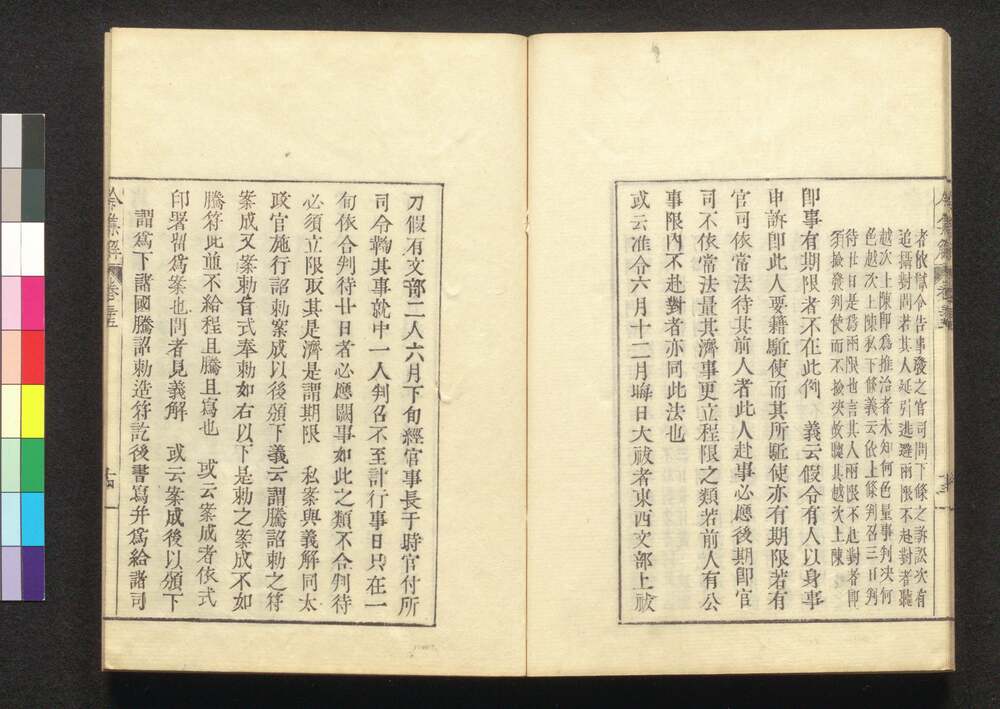 令集解 卷三十五
者依獄令告事發之官司問下條之訴訟次有
追攝對問者其人延引逃避兩限不赴對者聽
越次上陳即爲推治者未知何色量事判决何
色越次上陳私下條義云依上條判召三日判
待廿日是爲兩限也言其人兩限不赴對者即
須撿發判使而不撿决故聽其越次上陳
即事有期限者不在此例 義云假令有人以身事
申訴即此人要藉駈使而其所駈使亦有期限若有
官司依常法待其前人者此人赴事必應後期即官
司不依常法量其濟事更立程限之類若前人有公
事限內不赴對者亦同此法也
或云准令六月十二月晦日大祓者東西文部上祓
刀假有文部二人六月下旬經官事長于時官付所
司令鞫其事就中一人判召不至計行事日只在一
旬依合判待廿日者必應闕事如此之類不合判待
必須立限取其是濟是謂期限 私案與義解同太
政官施行詔勅案成以後頒下義云謂騰詔勅之符
案成又案勅旨式奉勅如右以下是勅之案成不如
騰符此並不給程且騰且寫也 或云案成者依式
印署留爲案也問者見義解 或云案成後以頒下
謂爲下諸國騰詔勅造符訖後書寫并爲給諸司